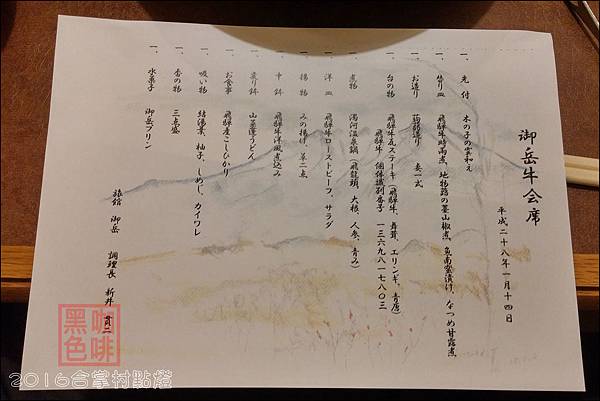 御岳牛会席
平成二十八年一月十四日
一、先付 木の子の雲和え
一、飛騨牛時雨煮、地物蕗の葉山椒煮、魚南蛮漬け、なつめ甘露煮
一、お造り 葡萄造り 妻一式
一、台の物 飛騨牛瓦ステーキ(飛騨牛、舞茸、エリンギ、青唐)
飛騨牛 個体識別番号 一三六九八一七八〇三
一、煮物 濁河温泉鍋(飛龍頭、大根、人参、青み)
一、洋皿 飛騨牛ローストビーフ、サラダ
一、揚物 みの揚げ、菜二点
一、中鉢 飛騨牛洋風煮込み
一、変り鉢 山菜淮うどん
一、お食事 飛騨産こしひかり
一、吸い物 結湯葉、柚子、しめじ、カイワレ
一、香の物 三点盛
一、水菓子 御岳プリン
旅館 御岳 調理長 新井 貫二
咖啡
黑色
2016合掌村點燈